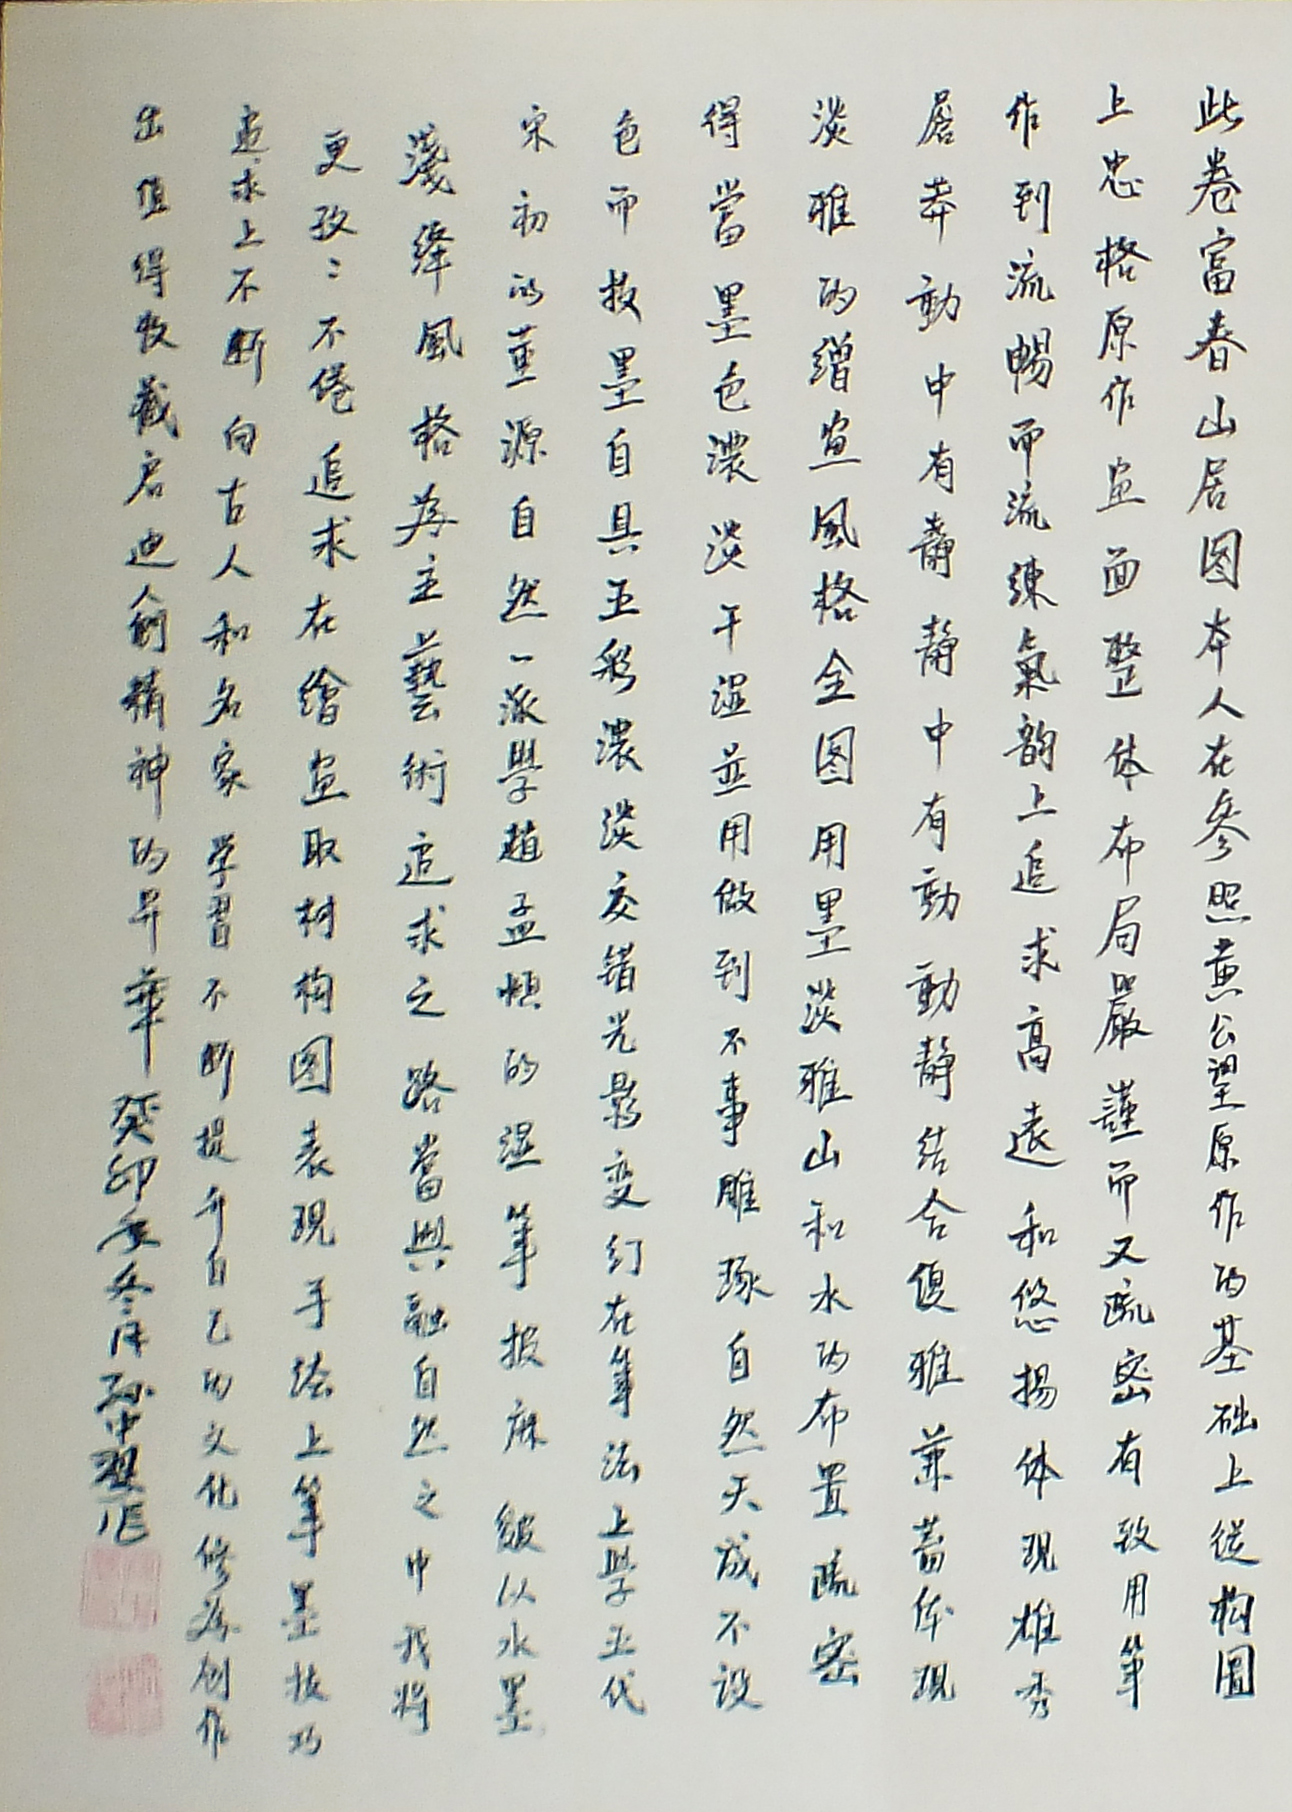 此卷富春山居图本人在參照黄公望原作的基础上從构圖
上忠格原作画面整体布局嚴謹而又疏密有致用筆
作到流暢而流練氣韵上追求高遠和悠揚体现雄秀
磨莽動中有靜靜中有動動靜结合優雅兼蓄体现
淡雅的繒画風格全图用墨淡雅山和水的布置疏密
得當墨色濃淡干湿並用做到不事雕琢自然天成不设
色而技墨自具五彩濃淡交錯光影变幻在筆法上學五代
宋初的董源自然一派學趙孟頫的湿筆披麻皴以水墨
淺絳風格為主藝術追求之路當與融自然之中我将
更孜〻不倦追求在繪画取材构图表现手绘上筆墨技巧
追求上不断向古人和名家学習不断提升自己的文化修為创作
出值得收藏启迪人们精神的昇華 癸卯年冬月孙中翌作